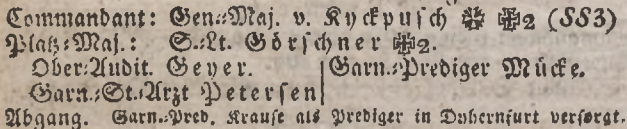 Commandant: Gen.⸗Maj. v. Ryckpusch ✠ ✠2 (SS3)
Platz⸗Maj.: S.⸗Lt. Görschner ✠2.
Ober⸗Audit. Geyer. Garn.⸗Prediger Mücke.
Garn.⸗St.⸗Arzt Petersen
Abgang. Garn.⸗Pred. Krause als Prediger in Dyhernfurt versorgt.